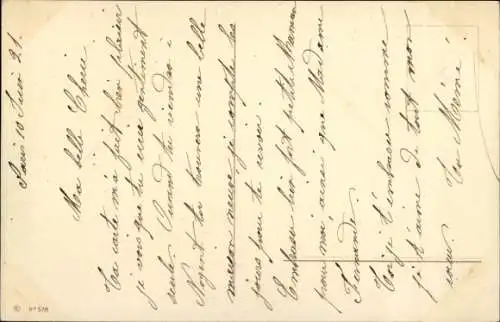 Paris 10 Juin 21.
Ma belle Chérie
Ta carte m'a fait bien plaisir
je vois que tu vas gentiment
seule. Quand tu viendras à
Nogent tu trouveras une belle
maison neuve je compte les
jours pour te revoir.
Embrasse bien fort petite Maman
pour moi ainsi que Madame
Fernande.
Toi je t'embrasse comme
je t'aime de tout mon
cœur.
Ta Mémé
N° 578